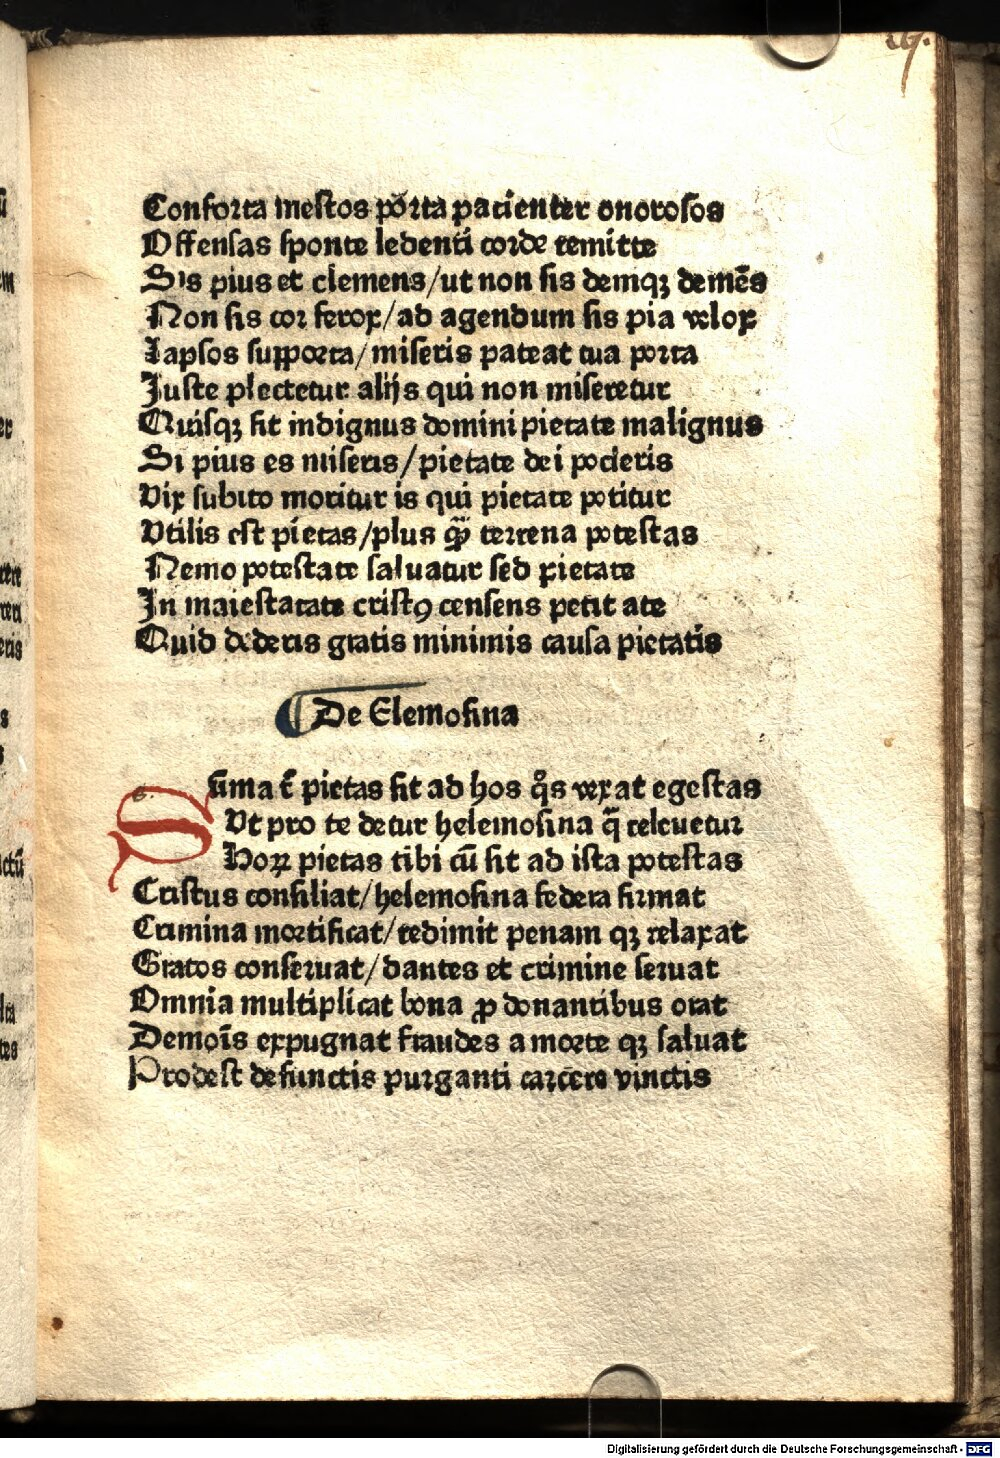 Conforta mestos porta pacienter onorosos
Offensas sponte ledenti corde remitte
Sis pius et clemens/ut non sis demqꝫ demēs
Non sis cor ferox/ad agendum sis pia velox
Iapsos supporta/miseris pateat tua porta
Iuste plectetur aliis qui non miseretur
Quisqꝫ sit indignus domini pietate malignus
Si pius es miseris/pietate dei pocieris
Vix subito moritur is qui pietate potitur
Vtilis est pietas/plus qᷓꝫ terrena potestas
Nemo potestate saluatur sed pietate
In maiestatate cristꝯ censens petit a te
Quid dederis gratis minimis causa pietatis
De Elemosina
Sūma t̄ pietas sit ad hos qͦs vexat egestas
Vt pro te detur helemosina q̄ releuetur
Horꝝ pietas tibi cū sit ad ista potestas
Cristus consiliat/helemosina federa firmat
Crimina mortificat/redimit penam qꝫ relaxat
Gratos conseruat/dantes et crimine seruat
Omnia multiplicat bona ꝓ donantibus orat
Demoīs expugnat fraudes a morte qꝫ saluat
Prodest defunctis purganti carcere vinctis
Digitalisierung gefördert durch die Deutsche Forschungsgemeinschaft - DFG